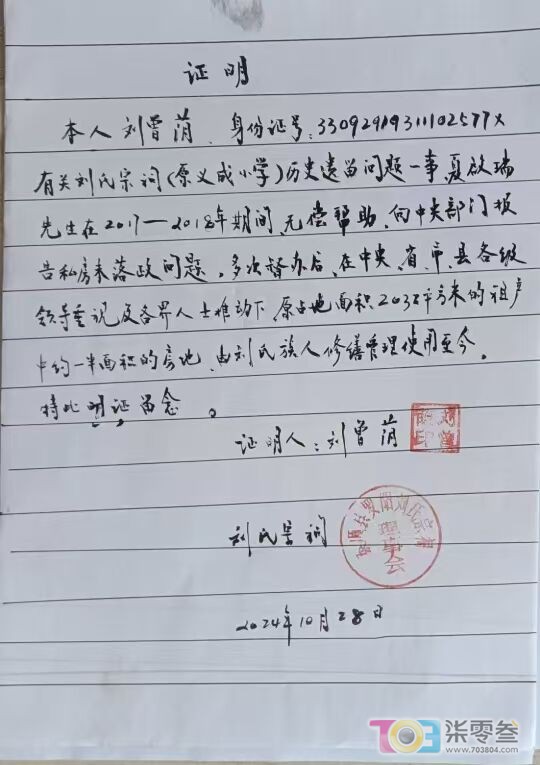 证明
本人刘曾荫,身份证号:33092919311102577X
有关刘氏宗词(原义成小学)历史遗留问题一事,夏啟瑞
先生在2017—2018年期间,无偿帮助,向中央部门报
告私房未落政问题,多次督办后,在中央、省、市、县各级
领导重视及各界人士推动下,原占地面积2032平方米的祖产
中约一半面积的房地,由刘氏族人修缮管理使用至今。
特此明证留念。
证明人:刘曾荫
刘氏宗词
理事会
2024年10月28日
703 柒零叁
www.703804.com